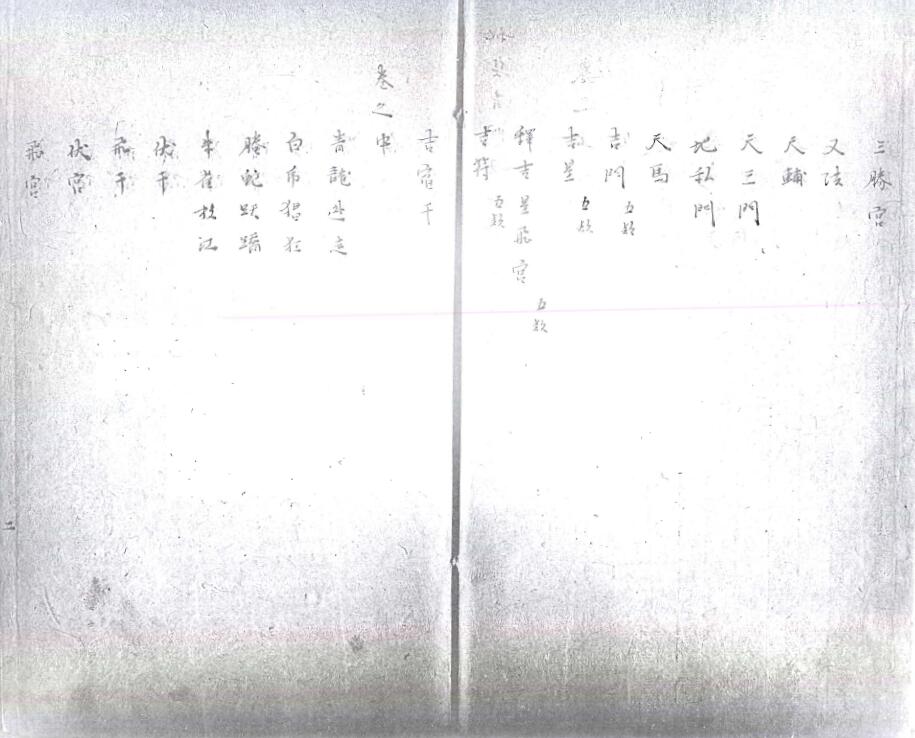 三勝宮
又法
天輔
天三門
地私門
天馬
吉門 五款
吉星 五款
釋吉星飛宮 五款
吉符 五款
吉宿干
卷之中
青龍逃走
白帀猖狂
騰蛇跃蹻
朱雀投江
伏干
飛干
伏宮
飛宮
二